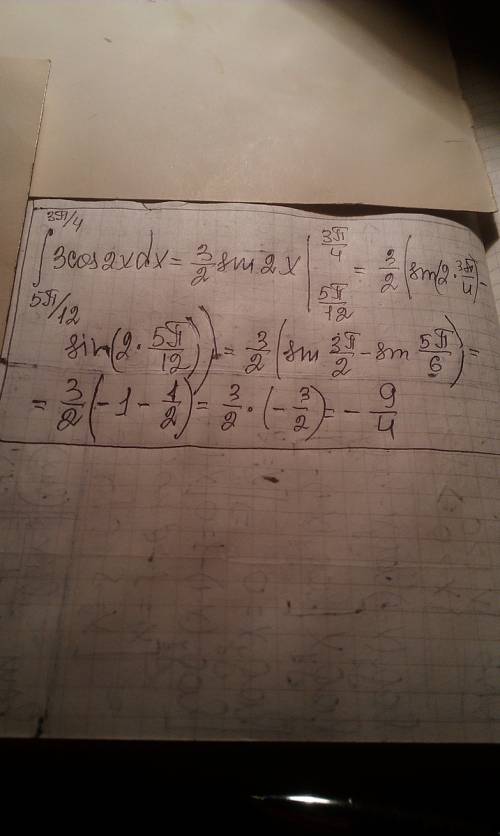 ∫_{5π/12}^{3π/4} 3cos2xdx = 3/2 sin 2x |_{5π/12}^{3π/4} = 3/2 (sin(2·3π/4) -
sin(2·5π/12)) = 3/2 (sin 3π/2 - sin 5π/6) =
= 3/2 (-1 - 1/2) = 3/2 · (-3/2) = -9/4